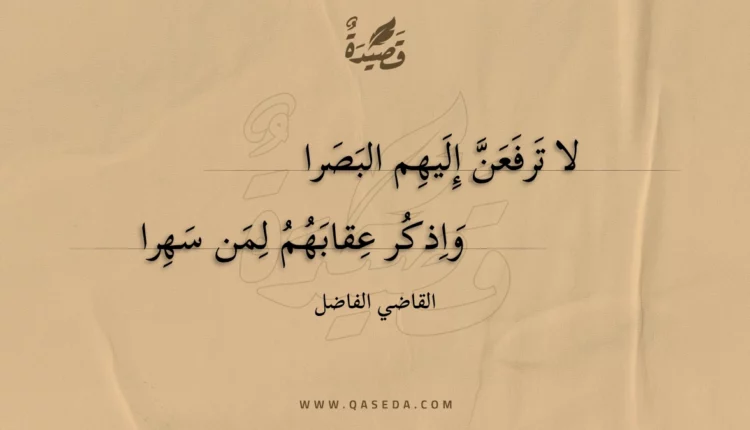 قَصِيْدَةٌ
لا تَرفَعَنَّ إِلَيهِم البَصَرا
وَاِذكُر عِقابَهُمُ لِمَن سَهِرا
القاضي الفاضل
WWW.QASEDA.COM